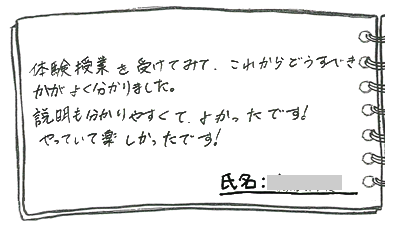 体験授業を受けてみて、これからどうすべき
かがよく分かりました。
説明も分かりやすくて、よかったです!
やっていて楽しかったです!
氏名: